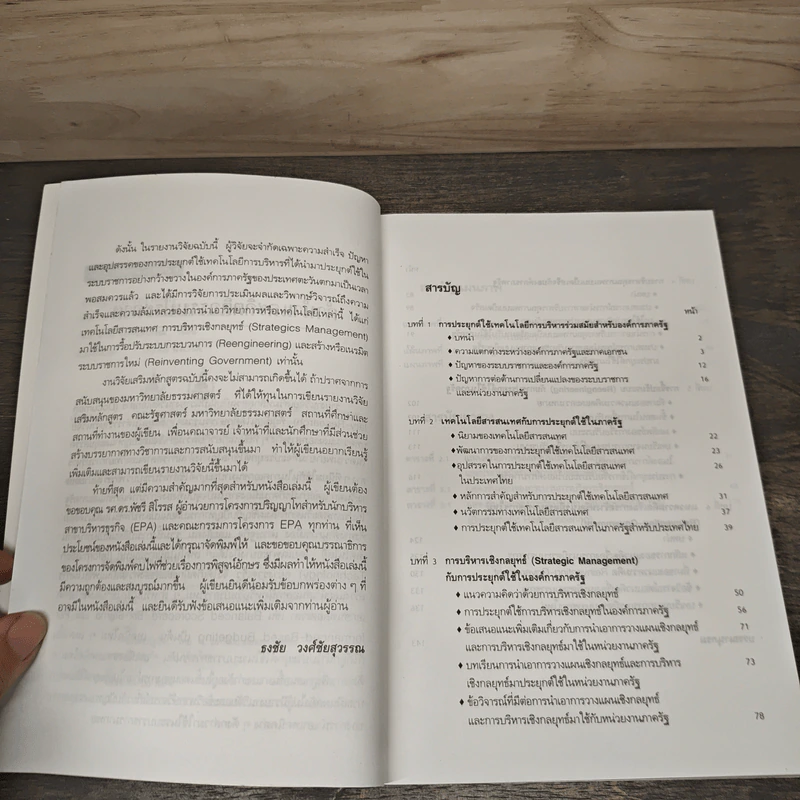 ดังนั้น ในรายงานวิจัยฉบับนี้ ผู้วิจัยจะจำกัดเฉพาะความสำเร็จ ปัญหา
และอุปสรรคของการประยุกต์ใช้เทคโนโลยีการบริหารที่ได้นำมาประยุกต์ใช้ใน
ระบบราชการอย่างกว้างขวางในองค์การภาครัฐของประเทศตะวันตกมาเป็นเวลา
พอสมควรแล้ว และได้มีการวิจัยการประเมินผลและวิพากษ์วิจารณ์ถึงความ
สำเร็จและความล้มเหลวของการนำเอาวิทยาการหรือเทคโนโลยีเหล่านี้ ได้แก่
เทคโนโลยีสารสนเทศ การบริหารเชิงกลยุทธ์ (Strategics Management)
มาใช้ในการรื้อปรับระบบกระบวนการ (Reengineering) และสร้างหรือเนรมิต
ระบบราชการใหม่ (Reinventing Government) เท่านั้น
งานวิจัยเสริมหลักสูตรฉบับนี้คงจะไม่สามารถเกิดขึ้นได้ ถ้าปราศจากการ
สนับสนุนของมหาวิทยาลัยธรรมศาสตร์ ที่ได้ให้ทุนในการเขียนรายงานวิจัย
เสริมหลักสูตร คณะรัฐศาสตร์ มหาวิทยาลัยธรรมศาสตร์ สถานที่ศึกษาและ
สถานที่ทำงานของผู้เขียน เพื่อนคณาจารย์ เจ้าหน้าที่และนักศึกษาที่มีส่วนช่วย
สร้างบรรยากาศทางวิชาการและการสนับสนุนขึ้นมา ทำให้ผู้เขียนอยากเรียนรู้
เพิ่มเติมและสามารถเขียนรายงานวิจัยนี้ขึ้นมาได้
ท้ายที่สุด แต่มีความสำคัญมากที่สุดสำหรับหนังสือเล่มนี้ ผู้เขียนต้อง
ขอขอบคุณ รศ.ดร.พัชรี สิโรรส ผู้อำนวยการโครงการปริญญาโทสำหรับนักบริหาร
สาขาบริหารธุรกิจ (EPA) และคณะกรรมการโครงการ EPA ทุกท่าน ที่เห็น
ประโยชน์ของหนังสือเล่มนี้และได้กรุณาจัดพิมพ์ให้ และขอขอบคุณบรรณาธิการ
ของโครงการจัดพิมพ์คบไฟที่ช่วยเรื่องการพิสูจน์อักษร ซึ่งมีผลทำให้หนังสือเล่มนี้
มีความถูกต้องและสมบูรณ์มากขึ้น ผู้เขียนยินดีน้อมรับข้อบกพร่องต่าง ๆ ที่
อาจมีในหนังสือเล่มนี้ และยินดีรับฟังข้อเสนอแนะเพิ่มเติมจากท่านผู้อ่าน
ธงชัย วงศ์ชัยสุวรรณ
สารบัญ
หน้า
บทที่ 1 การประยุกต์ใช้เทคโนโลยีการบริหารร่วมสมัยสำหรับองค์การภาครัฐ
♦ บทนำ 2
♦ ความแตกต่างระหว่างองค์การภาครัฐและภาคเอกชน 3
♦ ปัญหาของระบบราชการและองค์การภาครัฐ 12
♦ ปัญหาการต่อต้านการเปลี่ยนแปลงของระบบราชการ 16
และหน่วยงานภาครัฐ
บทที่ 2 เทคโนโลยีสารสนเทศกับการประยุกต์ใช้ในภาครัฐ
♦ นิยามของเทคโนโลยีสารสนเทศ 22
♦ พัฒนาการของการประยุกต์ใช้เทคโนโลยีสารสนเทศ 23
♦ อุปสรรคในการประยุกต์ใช้เทคโนโลยีสารสนเทศ 26
ในประเทศไทย
♦ หลักการสำคัญสำหรับการประยุกต์ใช้เทคโนโลยีสารสนเทศ 31
♦ นวัตกรรมทางเทคโนโลยีสารสนเทศ 37
♦ การประยุกต์ใช้เทคโนโลยีสารสนเทศในภาครัฐสำหรับประเทศไทย 39
บทที่ 3 การบริหารเชิงกลยุทธ์ (Strategic Management)
กับการประยุกต์ใช้ในองค์การภาครัฐ
♦ แนวความคิดว่าด้วยการบริหารเชิงกลยุทธ์ 50
♦ การประยุกต์ใช้การบริหารเชิงกลยุทธ์ในองค์การภาครัฐ 56
♦ ข้อเสนอแนะเพิ่มเติมเกี่ยวกับการนำเอาการวางแผนเชิงกลยุทธ์ 71
และการบริหารเชิงกลยุทธ์มาใช้ในหน่วยงานภาครัฐ
♦ บทเรียนการนำเอาการวางแผนเชิงกลยุทธ์และการบริหาร 73
เชิงกลยุทธ์มาประยุกต์ใช้ในหน่วยงานภาครัฐ
♦ ข้อวิจารณ์ที่มีต่อการนำเอาการวางแผนเชิงกลยุทธ์
และการบริหารเชิงกลยุทธ์มาใช้กับหน่วยงานภาครัฐ 78